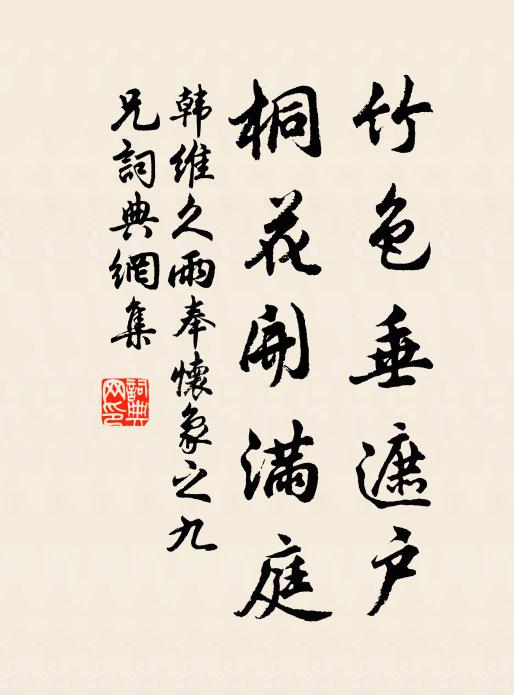 竹色垂遮户
桐花開滿庭
韩維久雨奉懷象之九
兄詞典網集
詞典網印